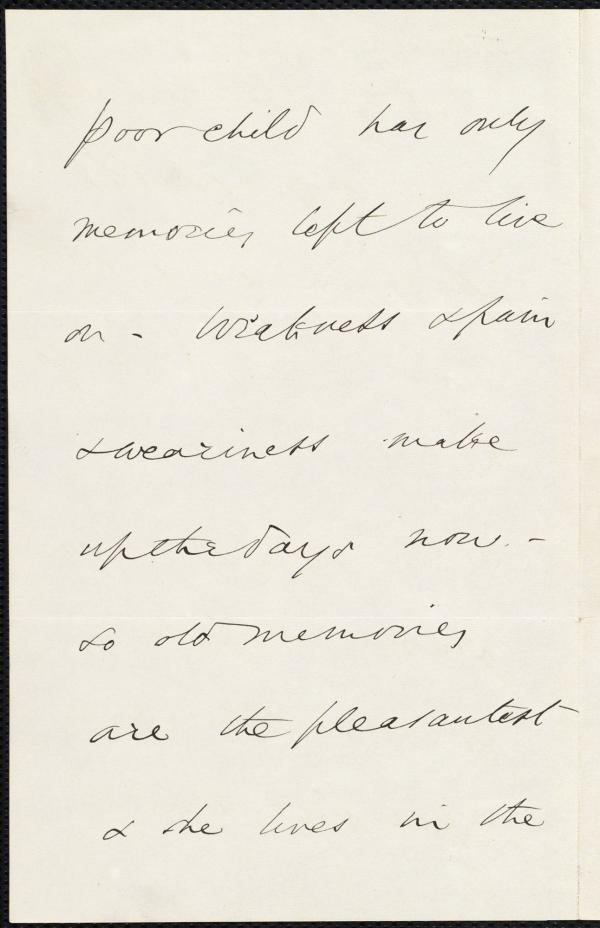 poor child has only
memories left to live
on - Weakness & pain
& weariness make
up the days now. -
so old memories
are the pleasantest
& she lives in the